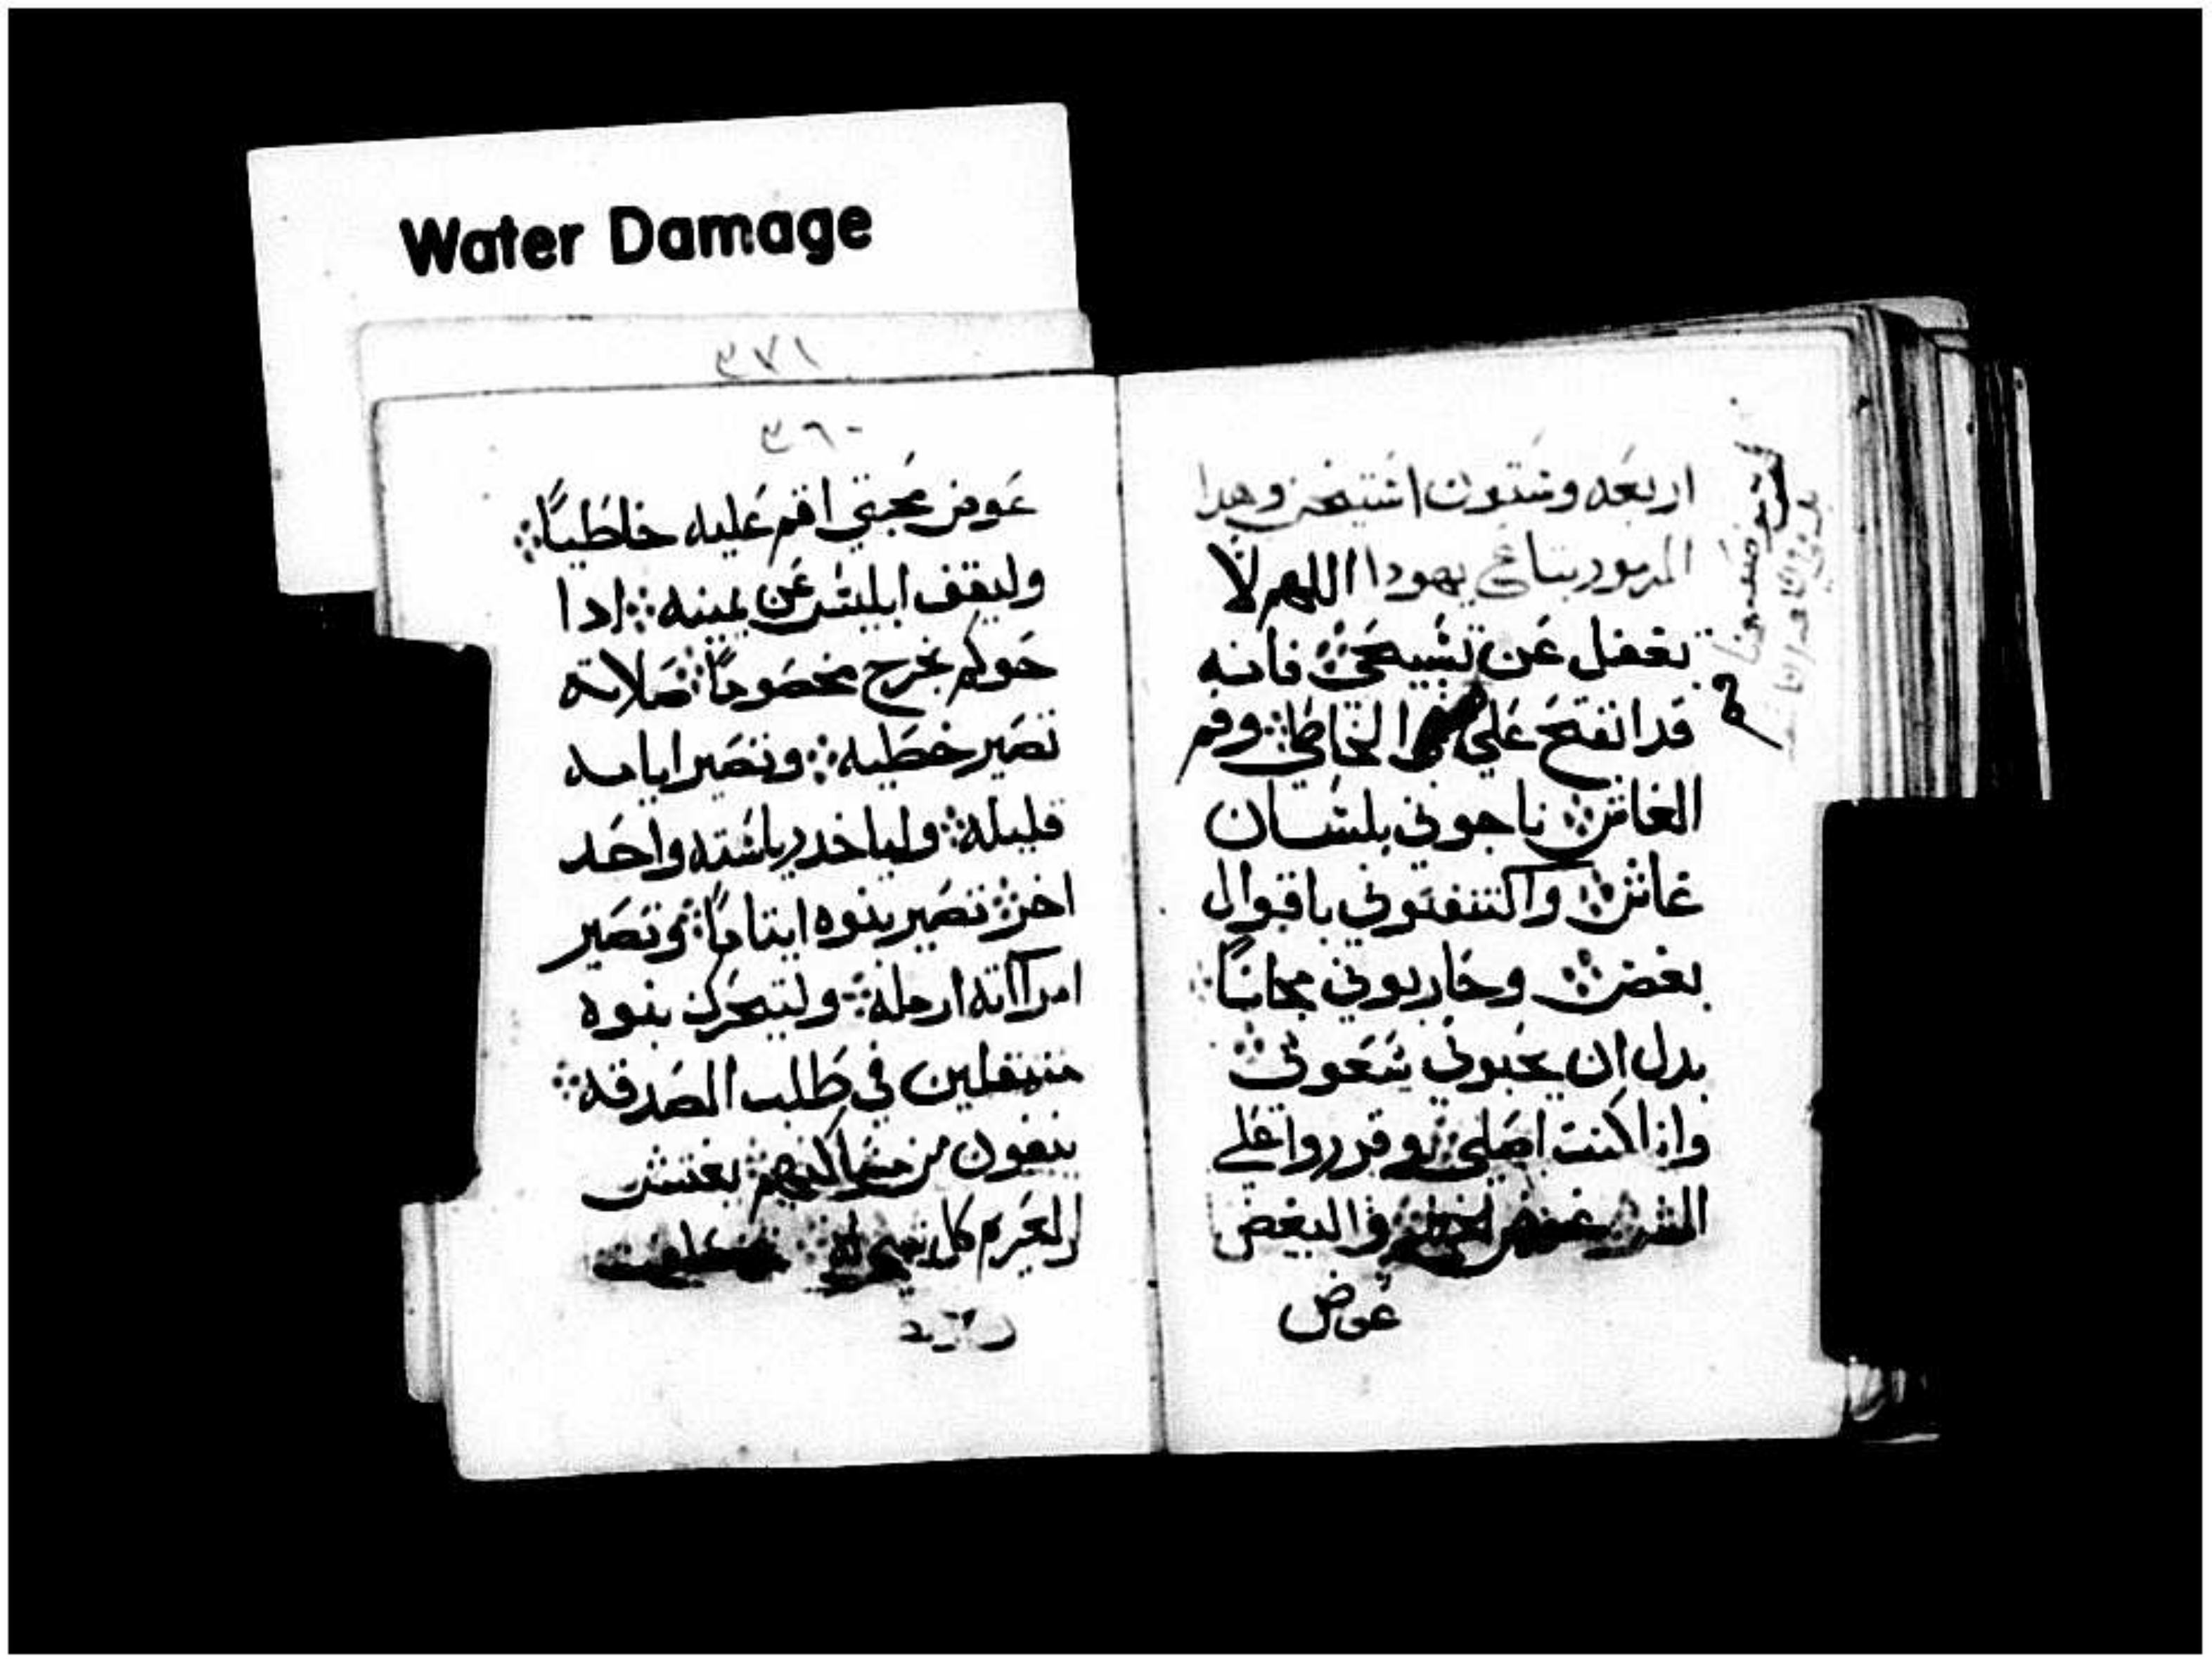 Water Damage
٣٧١
٣٦٠
اربعه وستون استيخن وهدا
المزمور بتاع يهودا اللهم لا
تغفل عن تسبيحتي فانه
قد انفتح علي الخاطي وفم
الغاش ناجوني بلسان
غاش واكتنفتوني باقوال
بغض وحاربوني مجانًا
بدل ان يحبوني سعوني
وانا كنت اصلي وقرروا علي
الشر عوض الخير والبغض
عوض
عوض محبتي اقم عليه خاطيًا
وليقف ابليس عن يمينه ادا
حوكم يخرج مخصومًا صلاته
تصير خطيه وتصير ايامه
قليله ولياخد رياسته واحد
اخر تصير بنوه ايتامًا وتصير
امراته ارمله ولتيحرك بنوه
منتقلين في طلب الصدقه
ينفون من مساكنهم يفتش
الغريم كل شي له